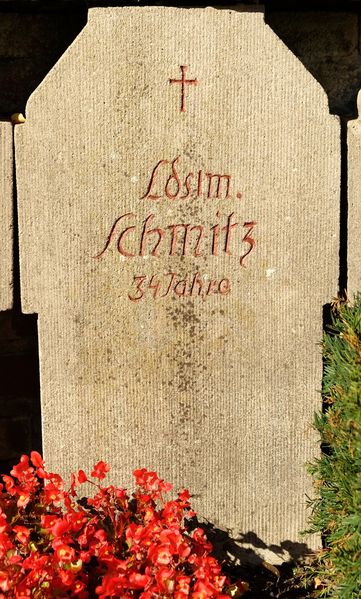 Ldstm.
Schmitz
34 Jahre